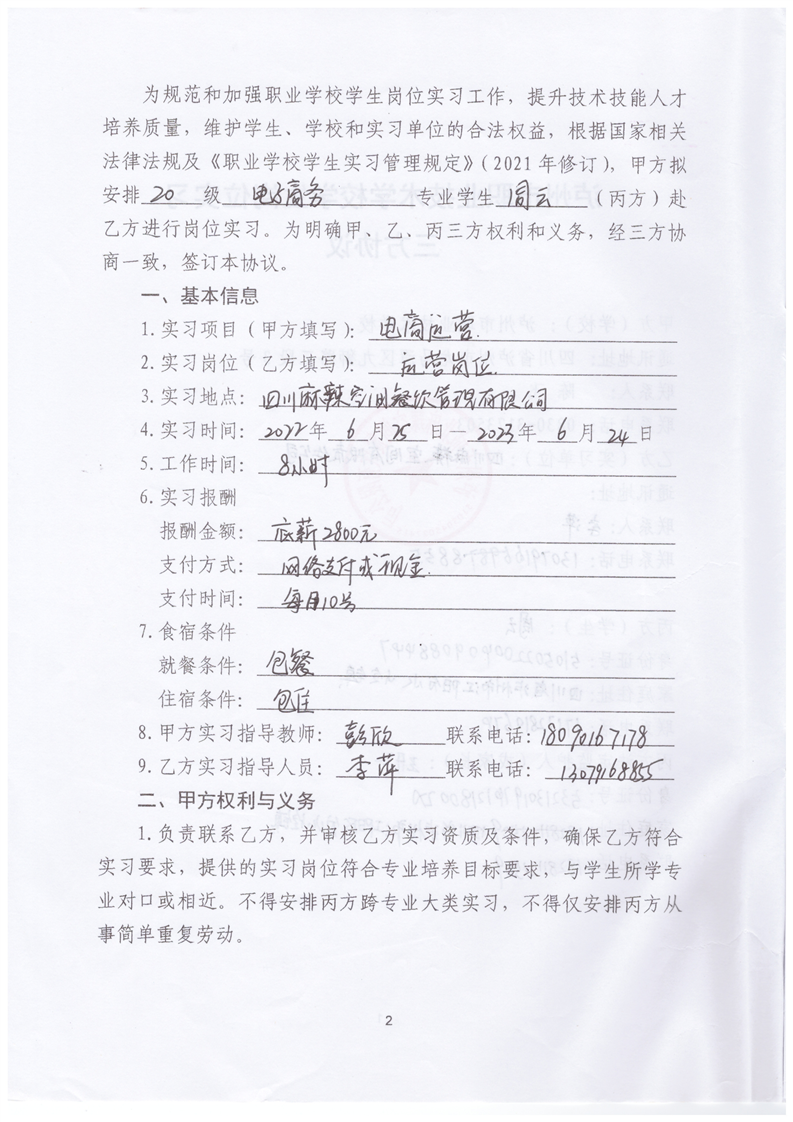 为规范和加强职业学校学生岗位实习工作，提升技术技能人才
培养质量，维护学生、学校和实习单位的合法权益，根据国家相关
法律法规及《职业学校学生实习管理规定》（2021年修订），甲方拟
安排 20 级 电子商务 专业学生 周云 （丙方）赴
乙方进行岗位实习。为明确甲、乙、丙三方权利和义务，经三方协
商一致，签订本协议。
一、基本信息
1.实习项目（甲方填写）： 电商运营.
2.实习岗位（乙方填写）： 运营岗位.
3.实习地点： 四川麻辣空间餐饮管理有限公司
4.实习时间： 2022 年 6 月 25 日－ 2023 年 6 月 24 日
5.工作时间： 8小时
6.实习报酬
报酬金额： 底薪2800元
支付方式： 网络支付或现金.
支付时间： 每月10号
7.食宿条件
就餐条件： 包餐
住宿条件： 包住
8.甲方实习指导教师： 彭欣 联系电话： 18090167178
9.乙方实习指导人员： 李萍 联系电话： 13079168855
二、甲方权利与义务
1.负责联系乙方，并审核乙方实习资质及条件，确保乙方符合
实习要求，提供的实习岗位符合专业培养目标要求，与学生所学专
业对口或相近。不得安排丙方跨专业大类实习，不得仅安排丙方从
事简单重复劳动。
2